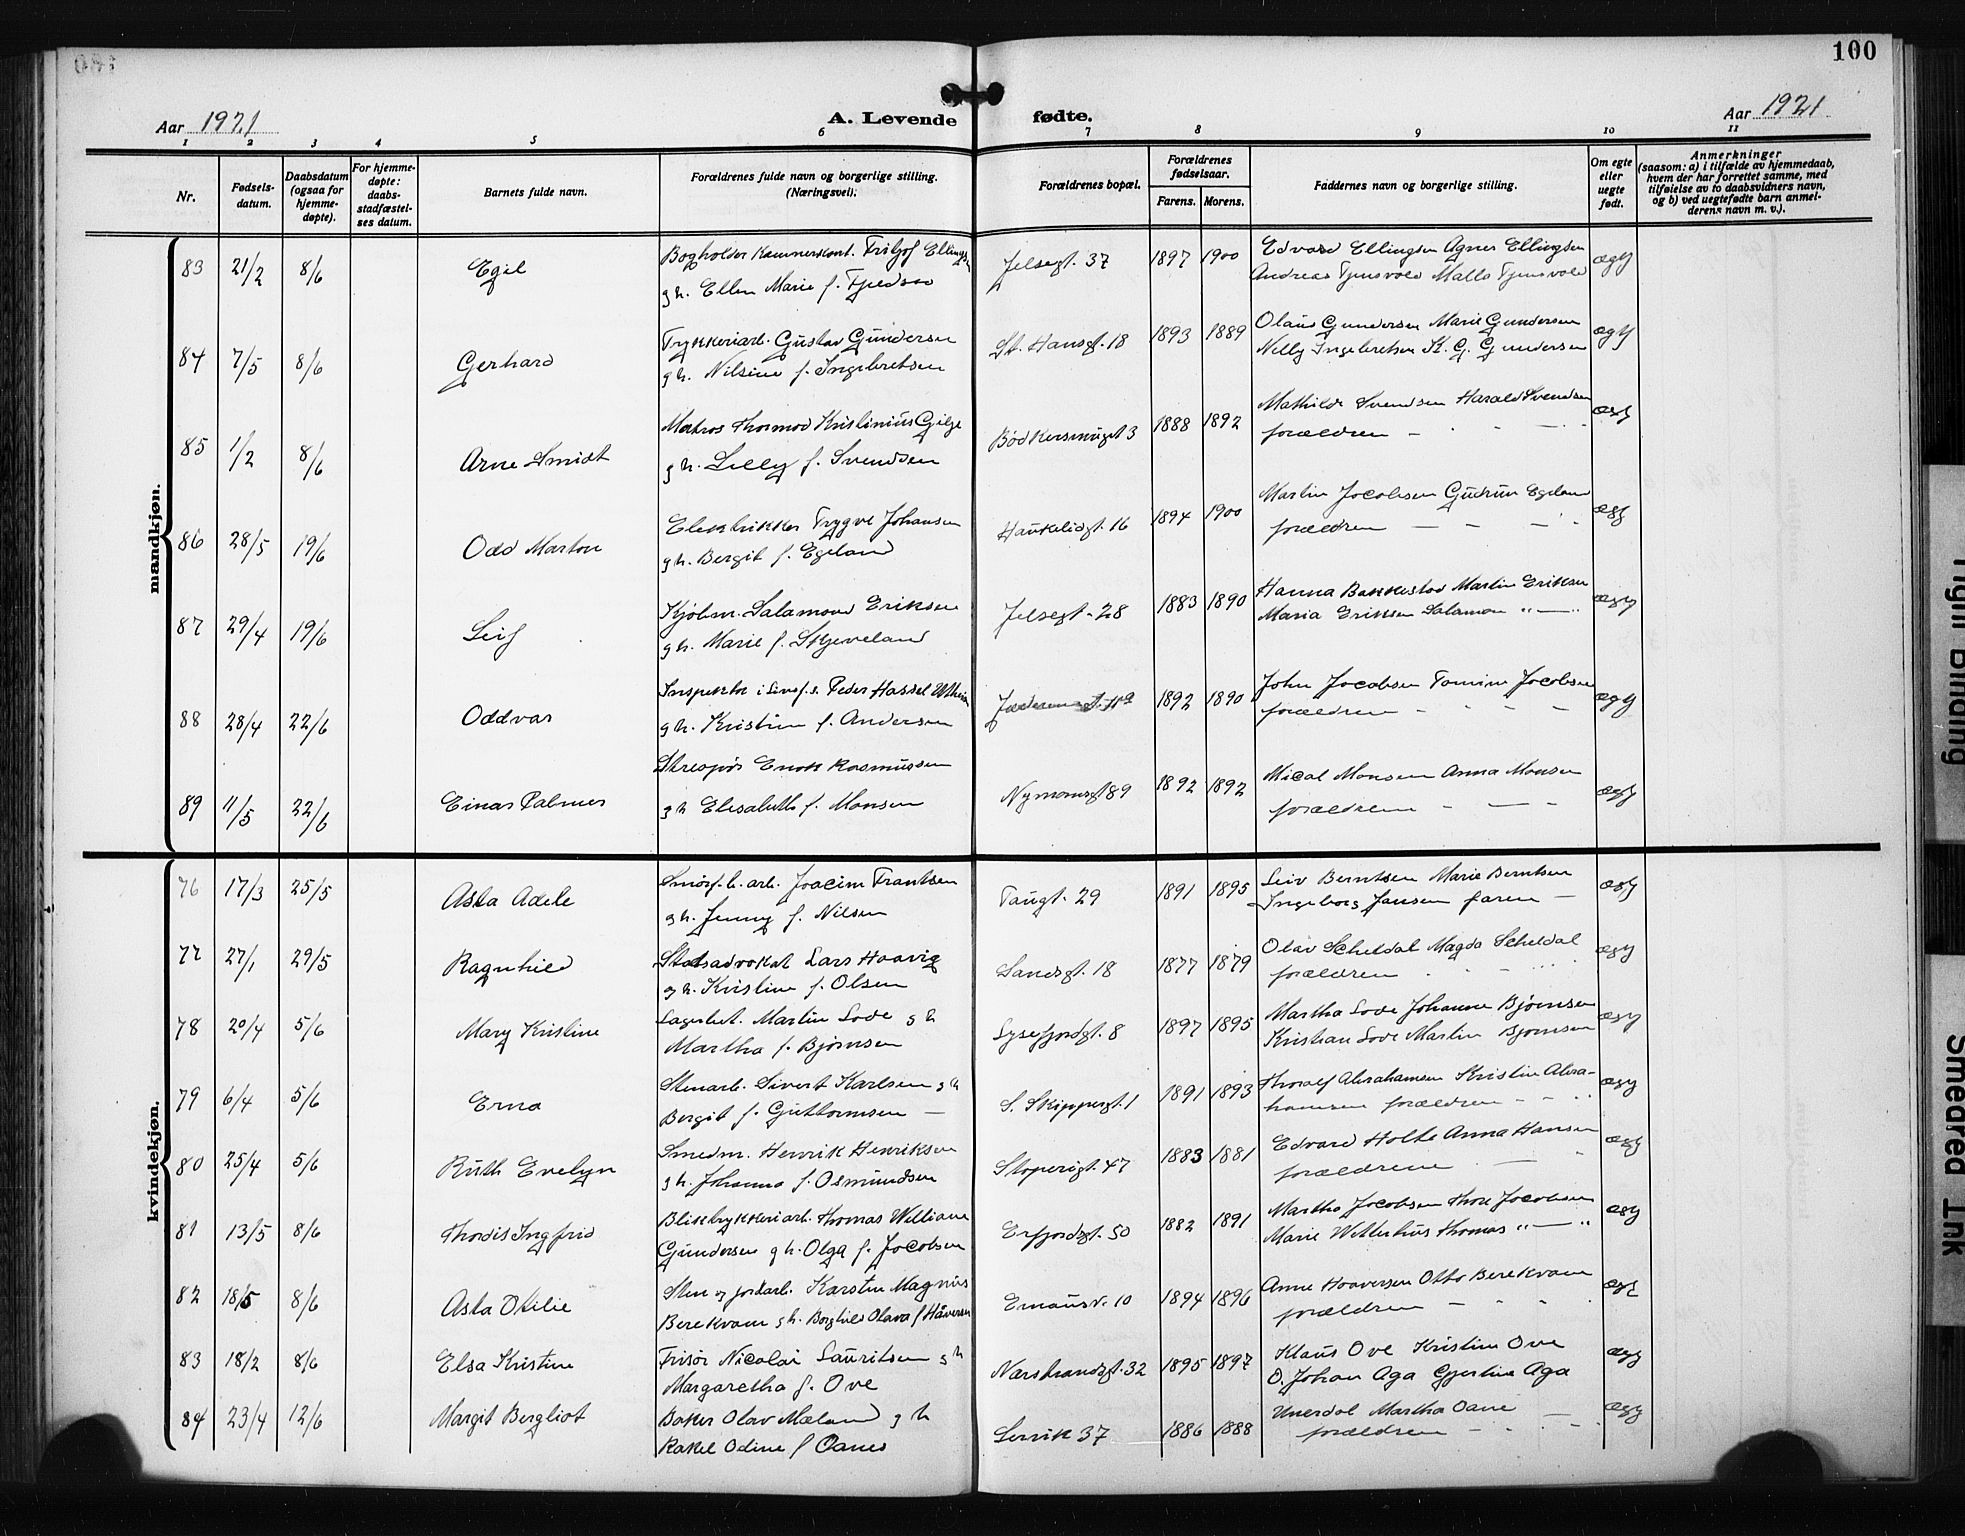 100
Aar 1921
A. Levende fødte.
Aar 1921
1 2 3 4 5 6 7 8 9 10 11
Nr.
Fødsels-
datum.
Daabsdatum
(ogsaa for
hjemme-
døpte).
For hjemme-
døpte:
daabs-
stadfæstel-
ses datum.
Barnets fulde navn.
Forældrenes fulde navn og borgerlige stilling.
(Næringsvei).
Forældrenes bopæl.
Forældrenes
fødselsaar.
Farens. Morens.
Faddernes navn og borgerlige stilling.
Om egte
eller
uegte
født.
Anmerkninger
(saasom: a) i tilfælde av hjemmedaab,
hvem der har forrettet samme, med
tilføielse av to daabsvidners navn,
og b) ved uegtefødte barn anmel-
derens navn m. v.).
mandkjøn.
83 21/2 8/6 Egil
Bogholder Kæmnerkont. Fritjof Ellingsen
g h. Ellen Marie f.
Jelsegt. 37 1897 1900
Edvard Ellingsen Agnes Ellingsen
Andreas Tjensvold Malla Tjensvold
ægt
84 7/5 8/6 Gerhard
Trykkeriarb. Gustav Gundersen
g h. Nilsine f. Ingebretsen
St. Hansgt. 18 1893 1889
Olaus Gundersen Marie Gundersen
Nelly Ingebretsen K. G. Gundersen
ægt
85 1/2 8/6 Arne Smidt
Matros Thormod Kristinius Gilje
g h. Lilly f. Svendsen
Bødkersmuget 3 1888 1892
Mathilde Svendsen Harald Svendsen
forældren — " — "
ægt
86 28/5 19/6 Odd Marton
Elektriker Trygve Johansen
g h. Bergit f. Egeland
Haukeligt. 16 1894 1900
Martin Jocobsen Gudrun Egeland
forældren — — — "
ægt
87 29/4 19/6 Leif
Kjøbm. Salamon Eriksen
g h. Marie f. Skjeveland
Jelsegt. 28 1883 1890
Hanna Bakkestad Martin Eriksen
Maria Eriksen Salamon " — "
ægt
88 28/4 22/6 Oddvar
Inspektør i Livsf.s. Peder Hassel
g h. Kristine f. Andersen
Jæderensgt. 11a 1892 1890
John Jocobsen Tomine Jocobsen
forældren - - - -
ægt
89 11/5 22/6 Einar Palmer
Enok Rasmussen
g h Elisabeth f. Monsen
Nymansgt 89 1892 1892
Mical Monsen Anna Monsen
forældrene - — -
ægt
kvindekjøn.
76 17/3 25/5 Asta Adele
Smørf.b. arb. Joacim Frantsen
g h. Jenny f. Nilsen
Taugt. 29 1891 1895
Leiv Berntsen Marie Berntsen
Ingeborg Jansen faren —
ægt
77 27/1 29/5 Ragnhild
Statsadvokat Lars Haavig
g h. Kristine f. Olsen
Sandsgt. 18 1877 1879
Olav Scheldal Magda Scheldal
forældren
ægt
78 20/4 5/6 Mary Kristine
Lagerbet. Martin Lode g h
Martha f. Bjørnsen
Lysefjordgt. 8 1897 1895
Martha Lode Johanne Bjørnsen
Kristian Lode Martin Bjørnsen
ægt
79 6/4 5/6 Erna
Stenarb. Sivert Karlsen g h
Bergit f. Guttormsen —
S. Skippergt. 1 1891 1893
Thoralf Abrahamsen Kristine Abra-
hamsen forældren - - "
ægt
80 25/4 5/6 Ruth Evelyn
Smedm. Henrik Henriksen
g h. Johanna f. Osmundsen
Stoperigt. 47 1883 1881
Edvard Holte Anna Hansen
forældrene — "
ægt
81 13/5 8/6 Thordis Ingfrid
Bliktrykkeriarb. Thomas William
Gundersen g h. Olga f. Jocobsen
Erfjordgt. 50 1882 1891
Martha Jocobsen Thore Jocobsen
Marie Thomas " — "
ægt
82 18/5 8/6 Asta Otilie
Sten og jordarb. Karsten Magnus
Berekvam g h. Borghild Olava f Håversen
Emausv. 10 1894 1896
Anne Haaversen Otto Berekvam
forældren — " "
ægt
83 18/2 8/6 Elsa Kristine
Frisør Nicolai Lauritsen g h
Margaretha f. Ove
Nærstrandsgt. 32 1895 1897
Klaus Ove Kristine Ove
O. Johan Aga Gjertine Aga
ægt
84 23/4 12/6 Margit Bergliot
Baker Olav Mæland g h
Rakel Odine f Oanes
Lervik 37 1886 1888
Martha Oane —
forældren - - "
ægt
Tight Binding
Smeared Ink